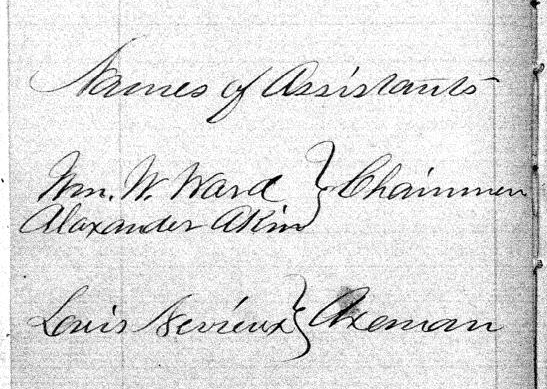 Names of Assistants
Wm. W. Ward } Chainmen
Alaxander Akin
Louis } Axeman